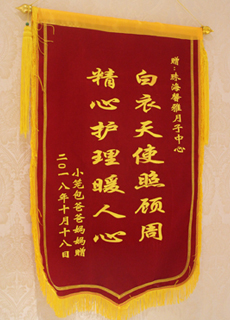 赠:珠海馨雅月子中心
白衣天使照顾周
精心护理暖人心
小笼包爸爸妈妈赠
二〇一八年十月十八日